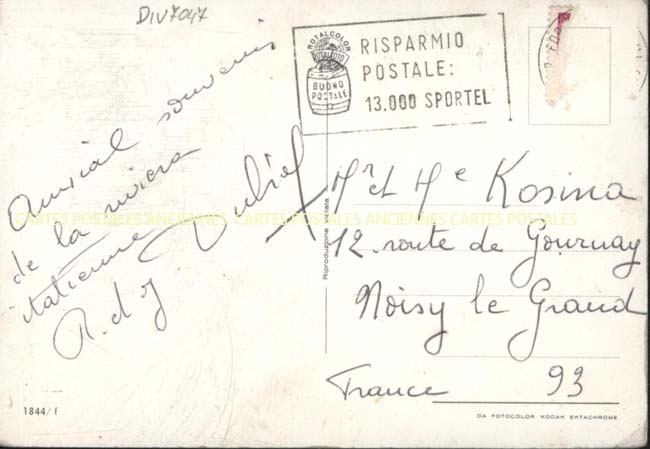 DIV7047
ROTALCOLOR
ROTALFOTO
BUONO
POSTALE
RISPARMIO
POSTALE:
13.000 SPORTEL
Amical souvenir
de la riviera
italienne
R. d J
CARTES POSTALES ANCIENNES CARTES POSTALES ANCIENNES CARTES POSTALES
Riproduzione vietata
Mr et Me Kosina
12. route de Gournay
Noisy le Grand
France 93
1844/f
DA FOTOCOLOR KODAK EKTACHROME